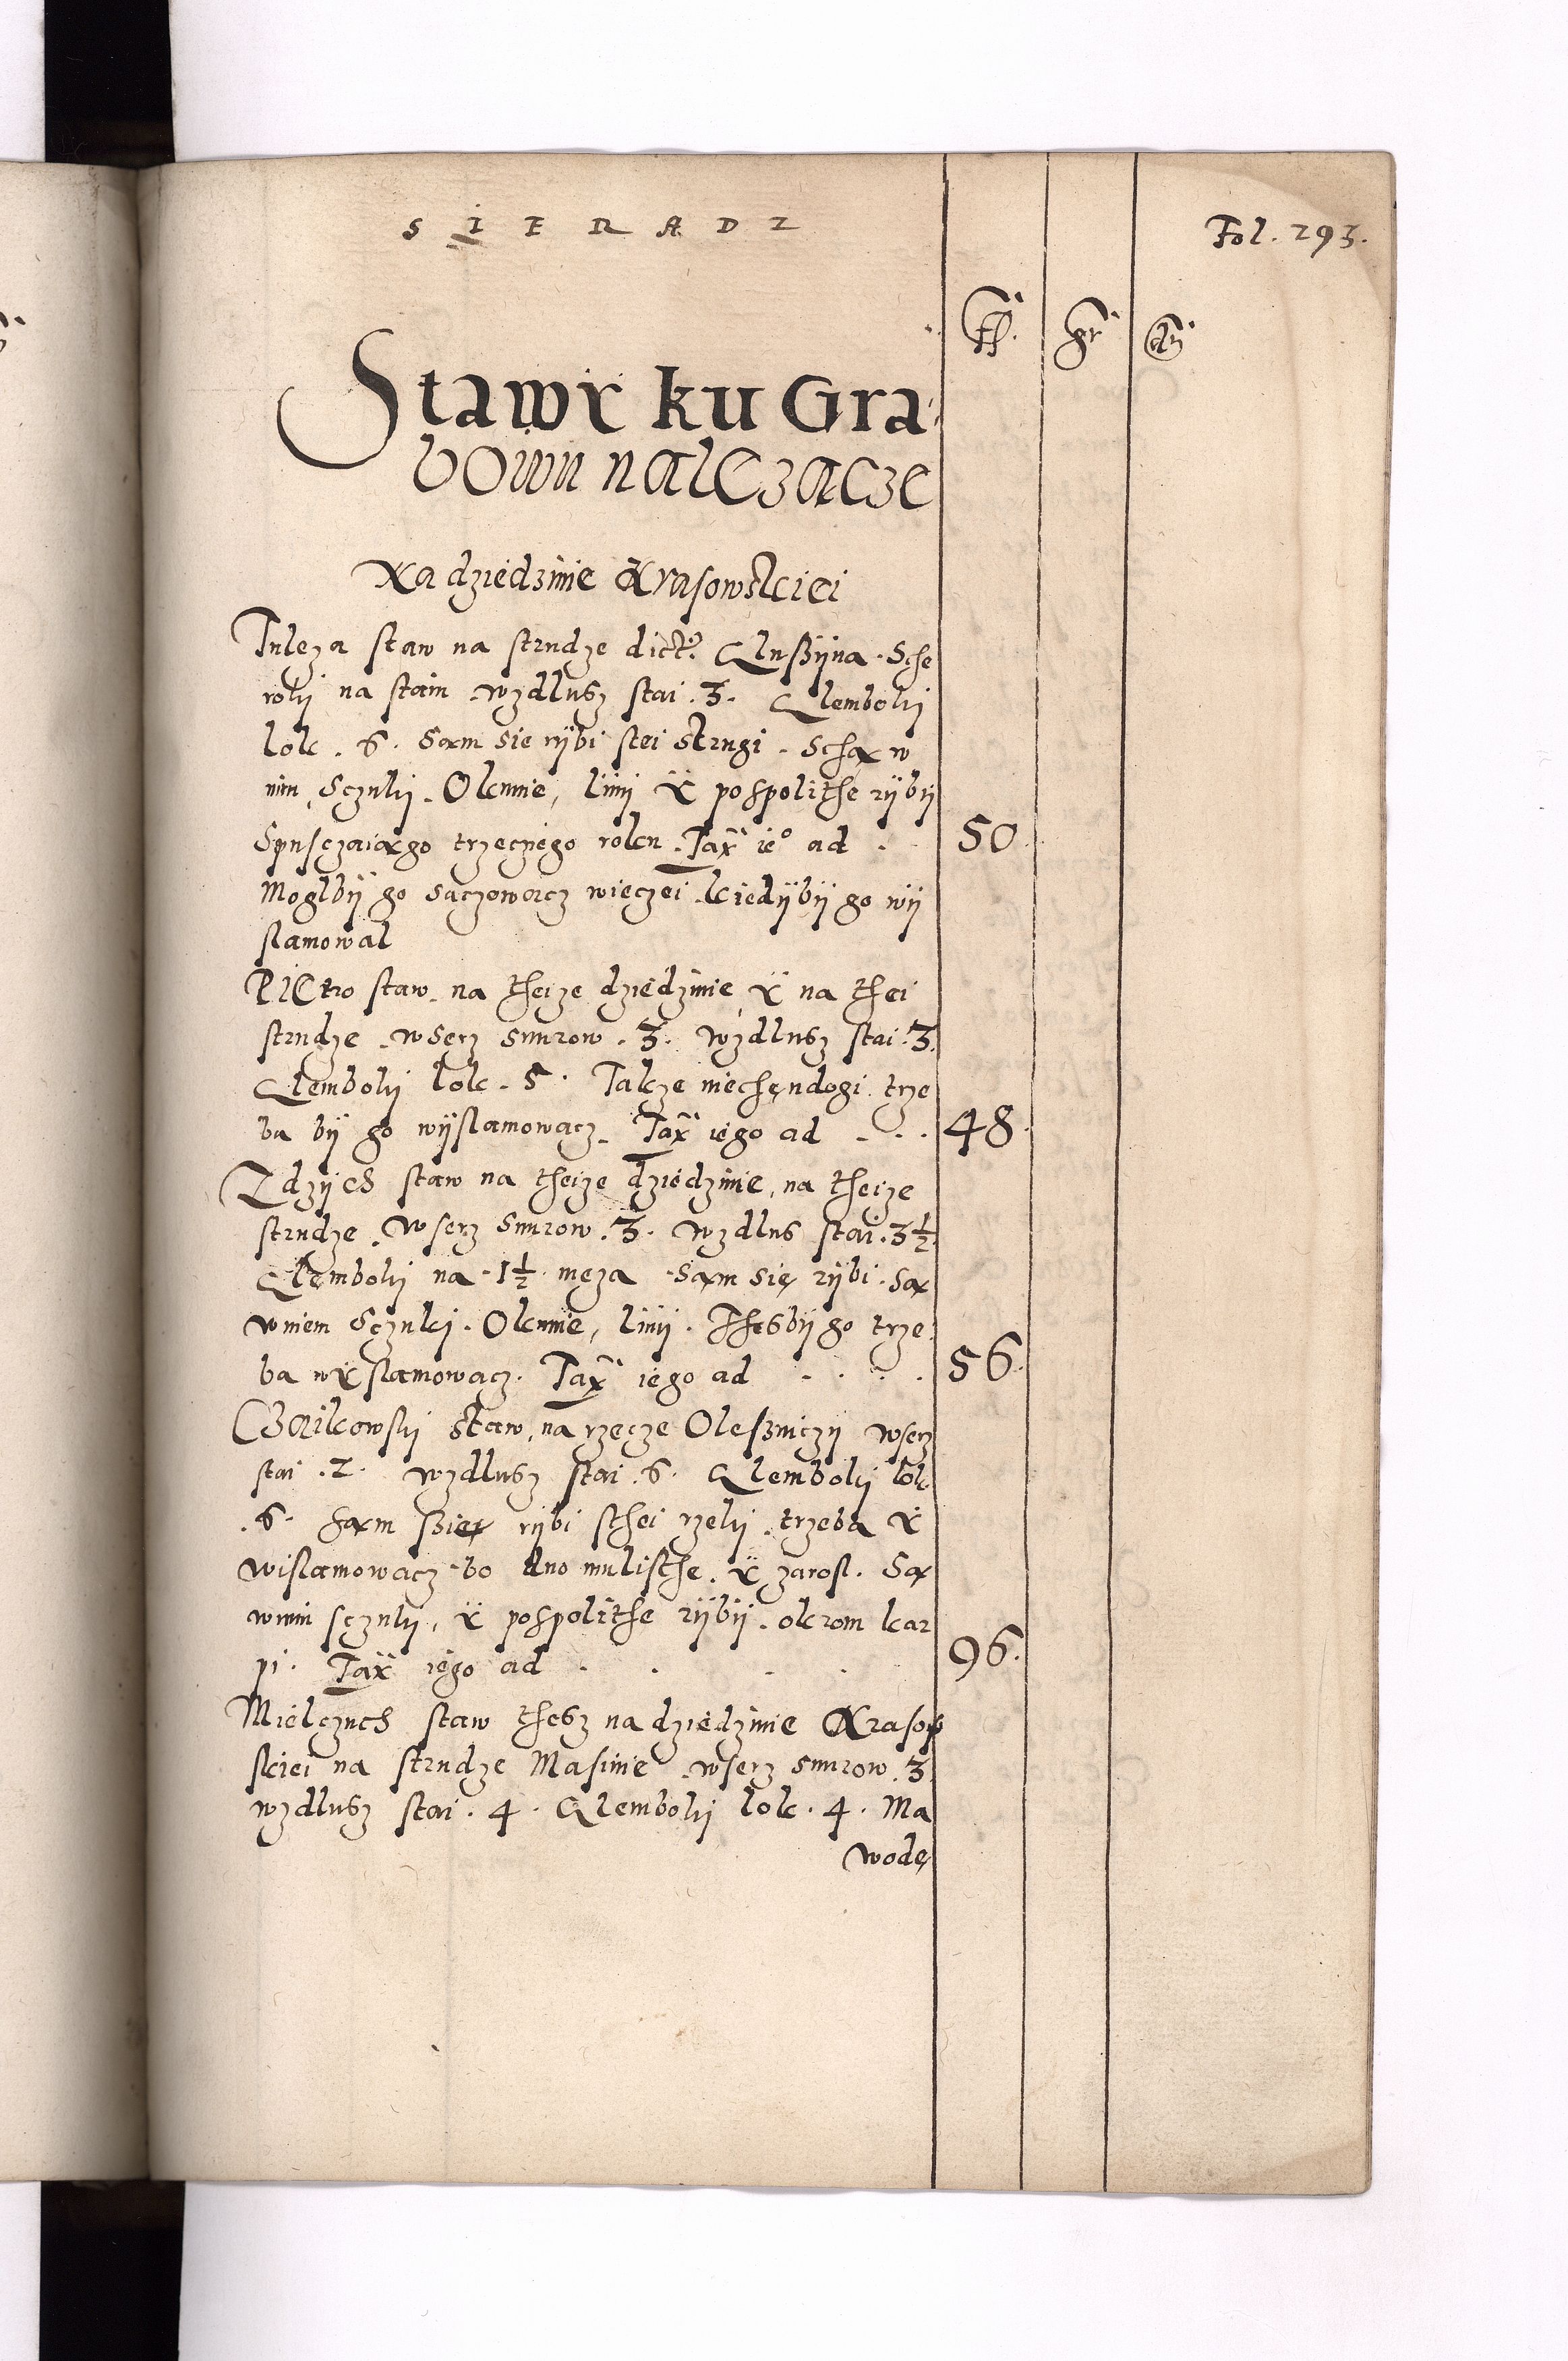 SIERADZ
Fol. 293.
fl. gr dn
Stawy ku Gra
bowu należącze
Na dziedzinie Krasowskiei
Tuleza staw na strudze dict. Glußÿna. Sche
rokÿ na stain wzdlusz stai. 3. Glembokÿ
lok. 6. Sam sie rÿbi stei strugi. Schą w
nim Sczukÿ. Okunie, linÿ ÿ pospolithe rÿbÿ
Spusczaią go trzeczego roku. Tax ie° ad . 50.
Moglbÿ go saczowacz wieczei kiedÿbÿ go wÿ
slamowal
Pietro staw na theize dziedzinie ÿ na thei
strudze wserz snurow. 3. wzdlusz stai. 3.
Glembokÿ lok. 5. Takze niechędogi trze
ba bÿ go wÿslamowacz. Tax iego ad . . . 48.
Zdzÿch staw na theize dziedzinie, na theize
strudze. wserz snurow. 3. wzdlus stai. 3½.
Glembokÿ na 1½ męza. Sąm się rÿbi. Są
wniem Sczuki. Okunie, linÿ. Thesbÿ go trze
ba wÿslamowacz. Tax iego ad . . . . 56.
Czaikowskÿ staw, na rzecze Oleßniczÿ wserz
stai. 2. wzdlusz stai. 6. Glembokÿ lok
. 6. Sąm ßię rÿbi sthei rzekÿ. trzeba ÿ
wislamowacz bo dno mulisthe. ÿ zarosl. Są
wnim sczukÿ, ÿ pospolithe rÿbÿ. okrom kar
pi. Tax iego ad . . . . 96.
Mielczuch staw thesz na dziedzinie Krasow
skiei na strudze Masinie wserz snurow. 3
wzdlusz stai. 4. Glembokÿ lok. 4. Ma
wodę